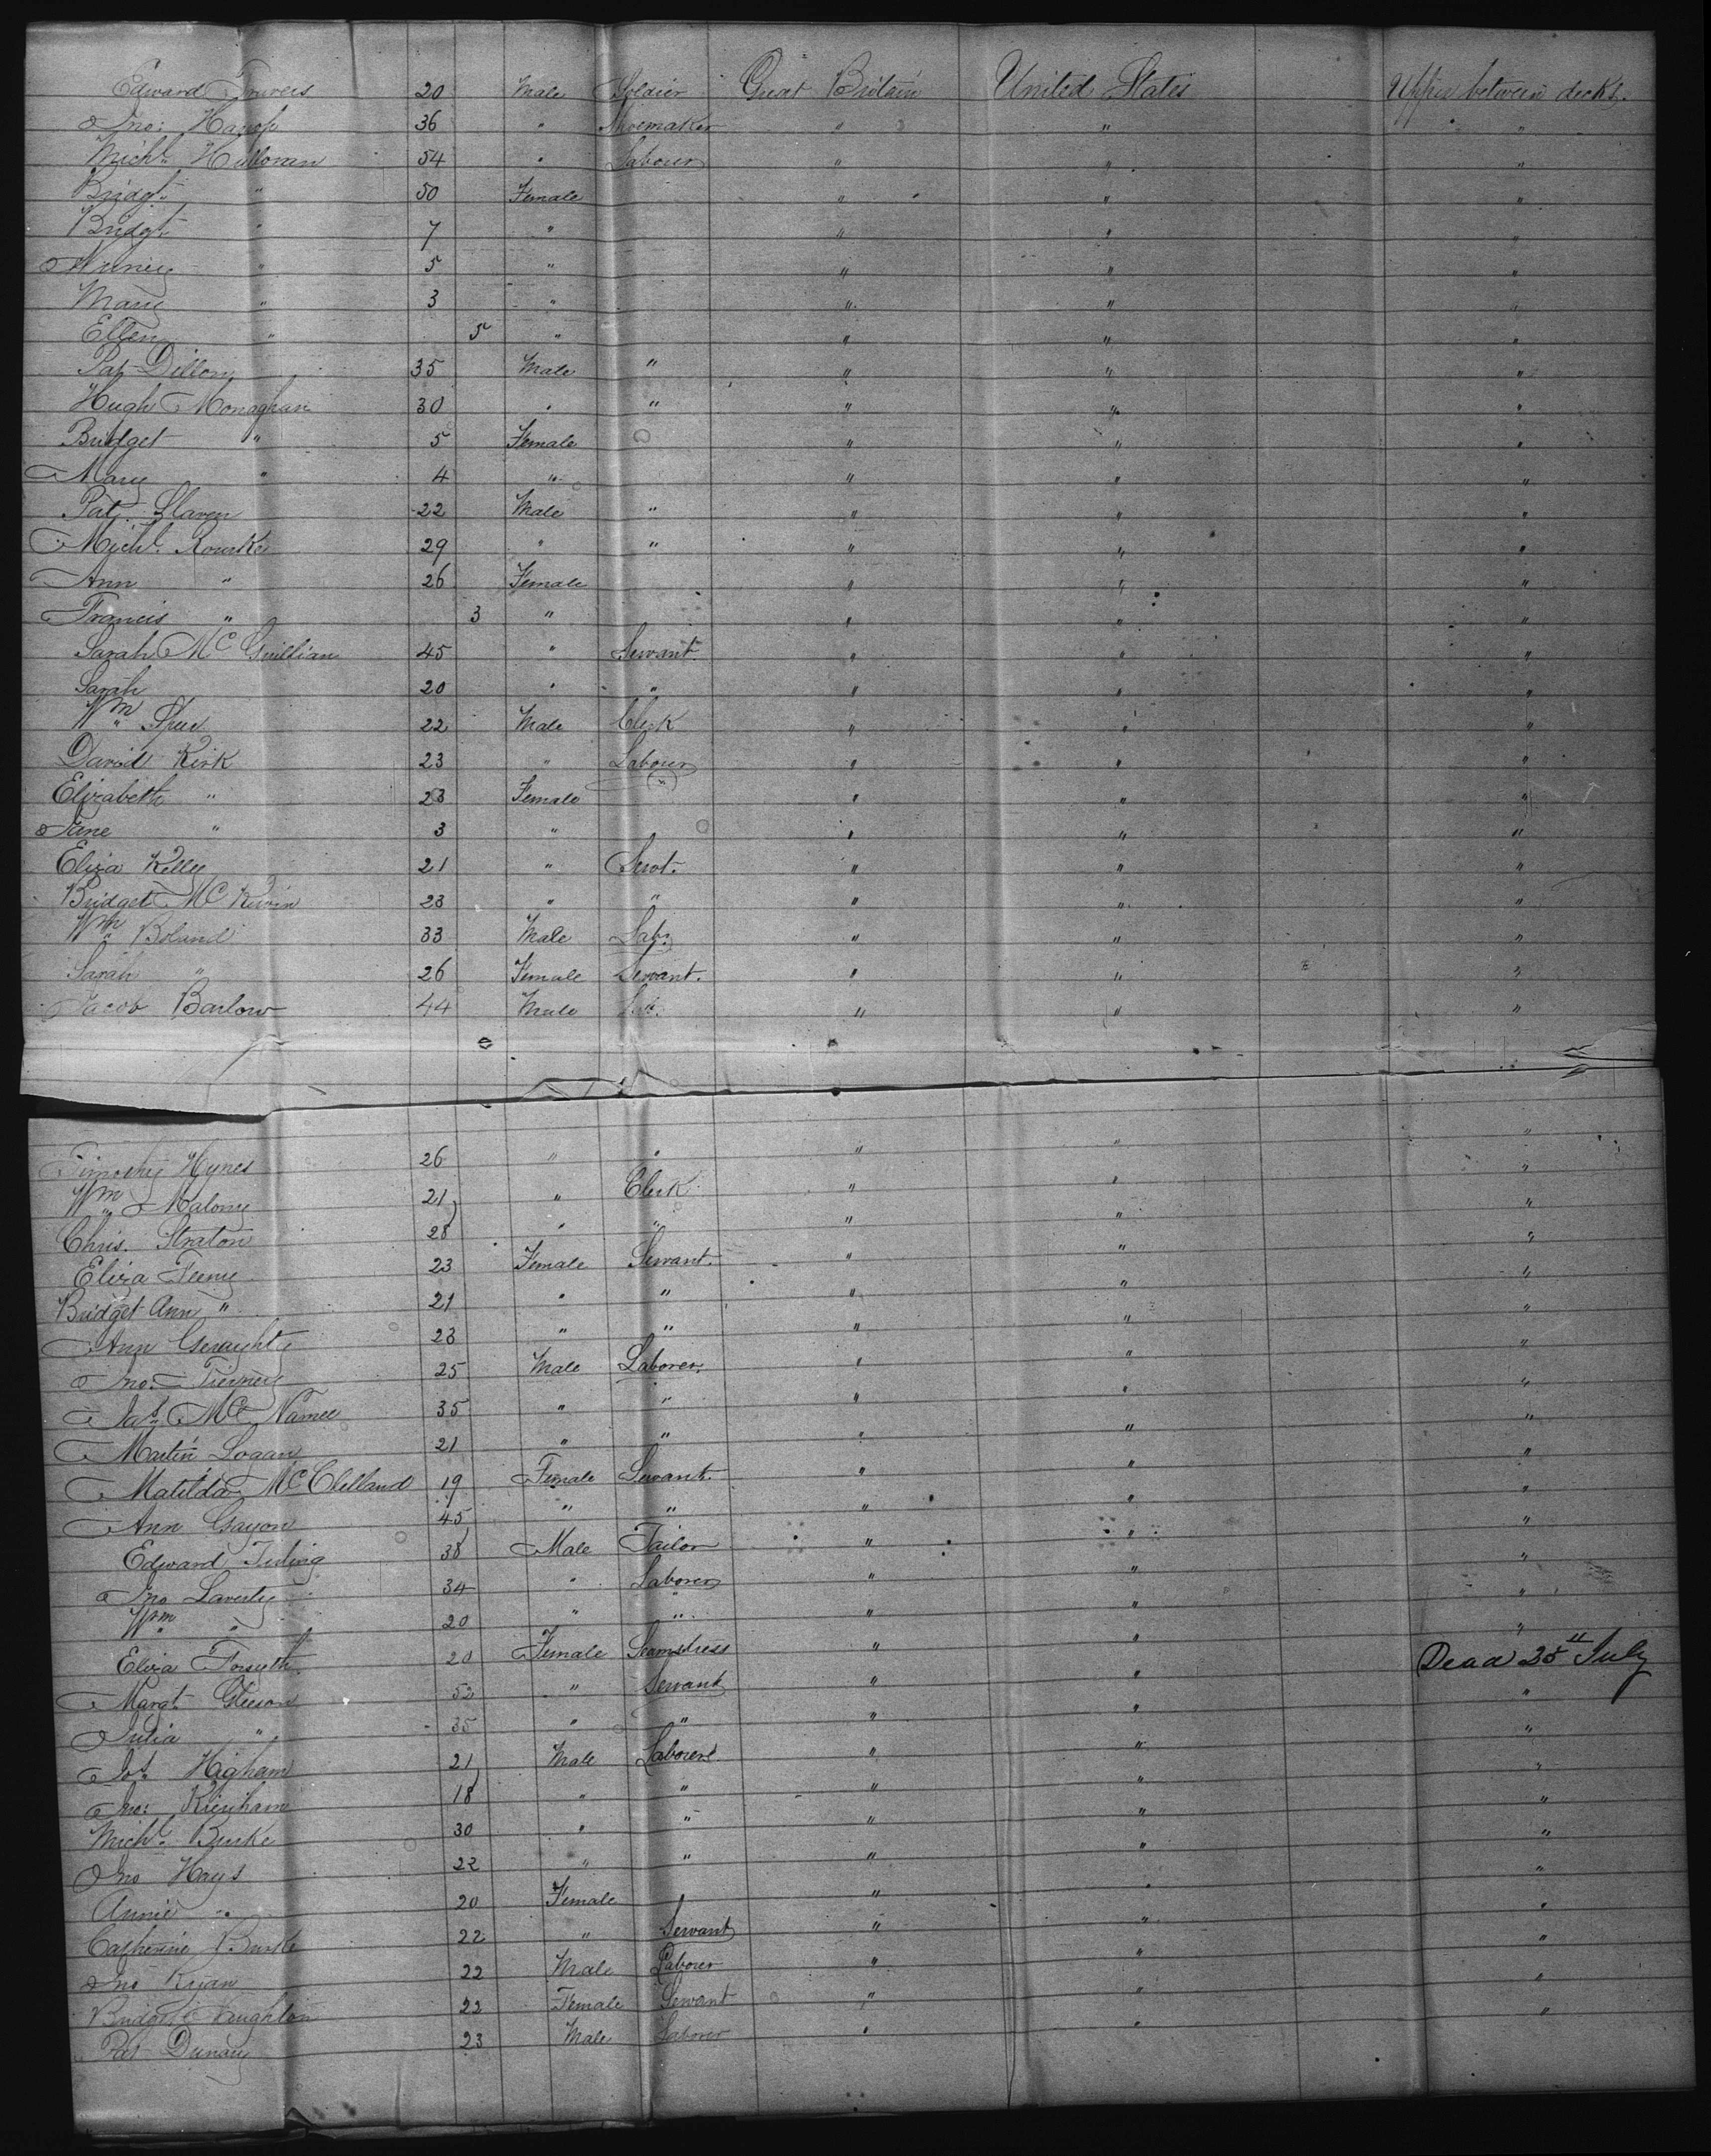 Edward Travers 20 Male Soldier Great Britain United States Upper between decks.
Jno: 36 " Shoemaker " " "
Michl. Halloran 54 " Labourer " " "
Bridgt. " 50 Female " " "
Bridgt. " 7 " " " "
Winney " 5 " " " "
Mary " 3 " " " "
Ellen " 5 " " " "
Pat Dillon 35 Male " " " "
Hugh Monaghan 30 " " " " "
Bridget " 5 Female " " "
Mary " 4 " " " "
Pat Slaven 22 Male " " " "
Michl. Rourke 29 " " " " "
Ann " 26 Female " " "
Francis " 3 " " " "
Sarah Mc Guillian 45 " Servant " " "
Sarah 20 " " " " "
Wm 22 Male Clerk " " "
David Kirk 23 " Labourer " " "
Elizabeth " 23 Female " " "
Jane " 3 " " " "
Eliza Kelly 21 " Servt. " " "
Bridget Mc 23 " " " " "
Wm Boland 33 Male Lab. " " "
Sarah " 26 Female Servant. " " "
Jacob Barlow 44 Male " " "
Timothy Hynes 26 " " " " "
Wm Malony 21 " Clerk " " "
Chris. Straton 28 " " " " "
Eliza Feeny 23 Female Servant. " " "
Bridget Ann " 21 " " " " "
Ann Geraghty 23 " " " " "
Jno. Tierney 25 Male Laborer " " "
Jas. Mc Namee 35 " " " " "
Martin Logan 21 " " " " "
Matilda McClelland 19 Female Servant. " " "
Ann 45 " " " " "
Edward 38 Male Tailor " " "
Jno Laverty 34 " Laborer " " "
Wm " 20 " " " " "
Eliza Forsyth 20 Female Seamstress " " "
Margt. Gleeson 52 " Servant " " Dead 25" July
Julia " 35 " " " " "
Higham 21 Male Laborer " " "
Jno: 18 " " " " "
Michl. Burke 30 " " " " "
Jno Hays 22 " " " " "
Annie " 20 Female " " "
Catherine Burke 22 " Servant " " "
Jno Ryan 22 Male Laborer " " "
Bridgt. Naughton 22 Female Servant " " "
Pat 23 Male Laborer " " "